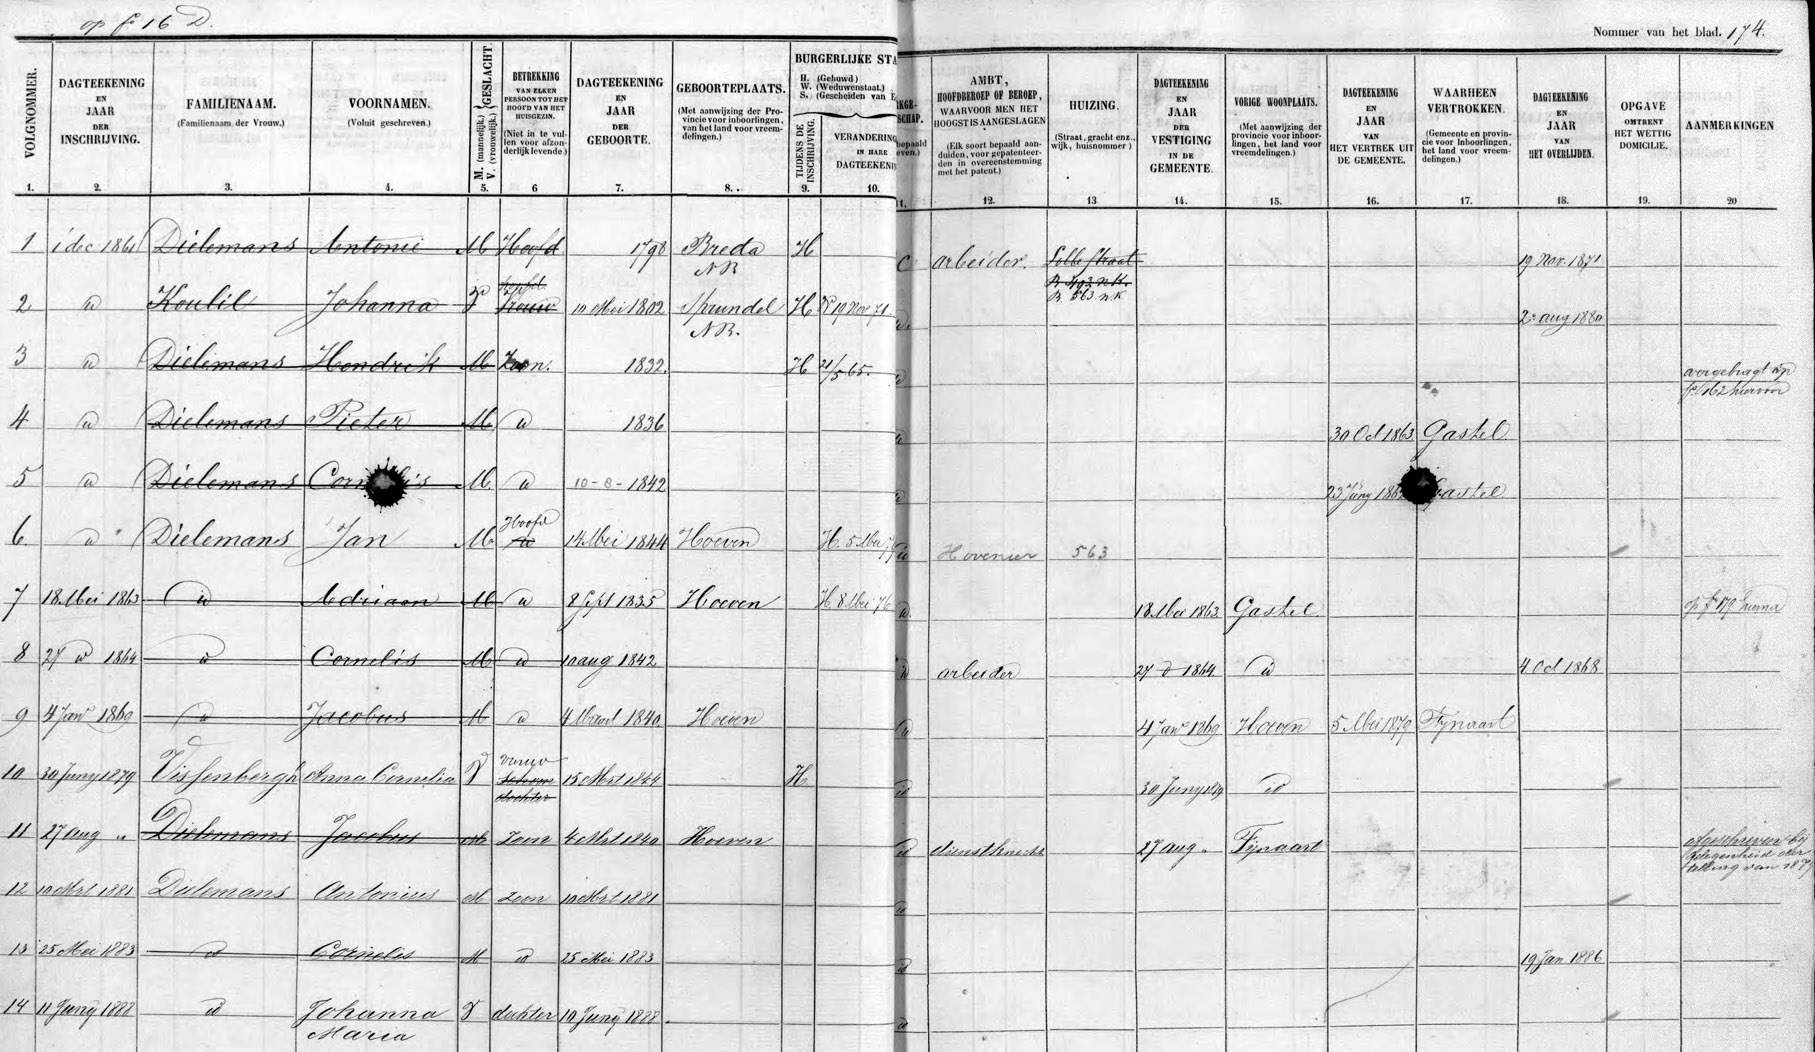 op fo 16 D.
Nommer van het blad. 174.
VOLGNOMMER.
DAGTEEKENING
EN
JAAR
DER
INSCHRIJVING.
FAMILIENAAM.
(Familienaam der Vrouw.)
VOORNAMEN.
(Voluit geschreven.)
GESLACHT
M. (mannelijk.)
V. (vrouwelijk.)
BETREKKING
VAN ELKEN
PERSOON TOT HET
HOOFD VAN HET
HUISGEZIN.
(Niet in te vul-
len voor afzon-
derlijk levende.)
DAGTEEKENING
EN
JAAR
DER
GEBOORTE.
GEBOORTEPLAATS.
(Met aanwijzing der Pro-
vincie voor inboorlingen,
van het land voor vreem-
delingen.)
BURGERLIJKE STA
H. (Gehuwd.)
W. (Weduwenstaat.)
S. (Gescheiden van E
TIJDENS DE
INSCHRIJVING.
VERANDERING
IN HARE
DAGTEEKENIN
KGE-
SCHAP.
bepaald
even.)
AMBT,
HOOFDBEROEP OF BEROEP,
WAARVOOR MEN HET
HOOGST IS AANGESLAGEN
(Elk soort bepaald aan-
duiden, voor gepatenteer-
den in overeenstemming
met het patent.)
HUIZING.
(Straat, gracht enz.,
wijk, huisnommer)
DAGTEEKENING
EN
JAAR
DER
VESTIGING
IN DE
GEMEENTE.
VORIGE WOONPLAATS.
(Met aanwijzing der
provincie voor inboor-
lingen, het land voor
vreemdelingen.)
DAGTEEKENING
EN
JAAR
VAN
HET VERTREK UIT
DE GEMEENTE.
WAARHEEN
VERTROKKEN.
(Gemeente en provin-
cie voor inboorlingen,
het land voor vreem-
delingen.)
DAGTEEKENING
EN
JAAR
VAN
HET OVERLIJDEN.
OPGAVE
OMTRENT
HET WETTIG
DOMICILIE.
AANMERKINGEN
1. 2. 3. 4. 5. 6 7. 8. 9. 10. 11. 12. 13 14. 15. 16. 17. 18. 19. 20
1 1 dec 1861 Dielemans Antonie M Hoofd 1798 Breda H arbeider. 19 Nov. 1871
NB
2 Koulil Johanna V Vrouw 10 Mei 1802 Sprundel H W 19 Nov 71. B. 563 NK 2 aug 1880
NB.
3 Dielemans Hendrik M Zoon. 1832. H 21/5 65. overgebragt op
fo 162 hiervoor
4 Dielemans Pieter M 1836 30 Oct 1863 Gastel
5 Dielemans M 10-8-1842 Gastel
Hoofd
6. Dielemans Jan M 14 Mei 1844 Hoeven H. 5 Mei 79 Hovenier 563
7 18 Mei 1863 Adriaan M 8 Sept 1835 Hoeven H 8 Mei 76 18 Mei 1863 Gastel op fo 179 hierna
8 27 1864 Cornelis M 10 aug 1842 arbeider 27 1864. 4 Oct 1868
9 4 Janr 1869 Jacobus M 4 Maart 1840. Hoeven 4 Janr 1869 Hoeven 5 Mei 1879 Fijnaart
vrouw
10 30 Juny 1879 Vissenbergh Anna Cornelia V 15 Mrt 1844 H. 30 Juny 1879
dochter
11 27 aug " Dielemans Jacobus M Zoon 4 Mrt 1840 Hoeven dienstknecht 27 aug " Fijnaart
afgeschreven bij
gelegenheid der
telling van 1879
12 10 Mrt 1881 Dielemans Antonius M zoon 10 Mrt 1881
13 25 Mei 1883 Cornelis M 25 Mei 1883 19 Jan 1886
14 11 Juny 1888 Johanna V dochter 10 Juny 1888.
Maria